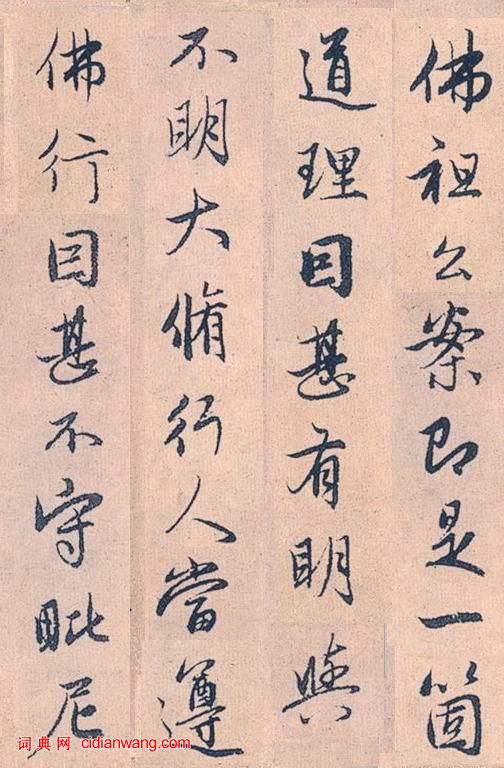 佛祖公案即是一箇
道理因甚有明與
不明大脩行人當遵
佛行因甚不守毗尼
词典网 cidianwang.com